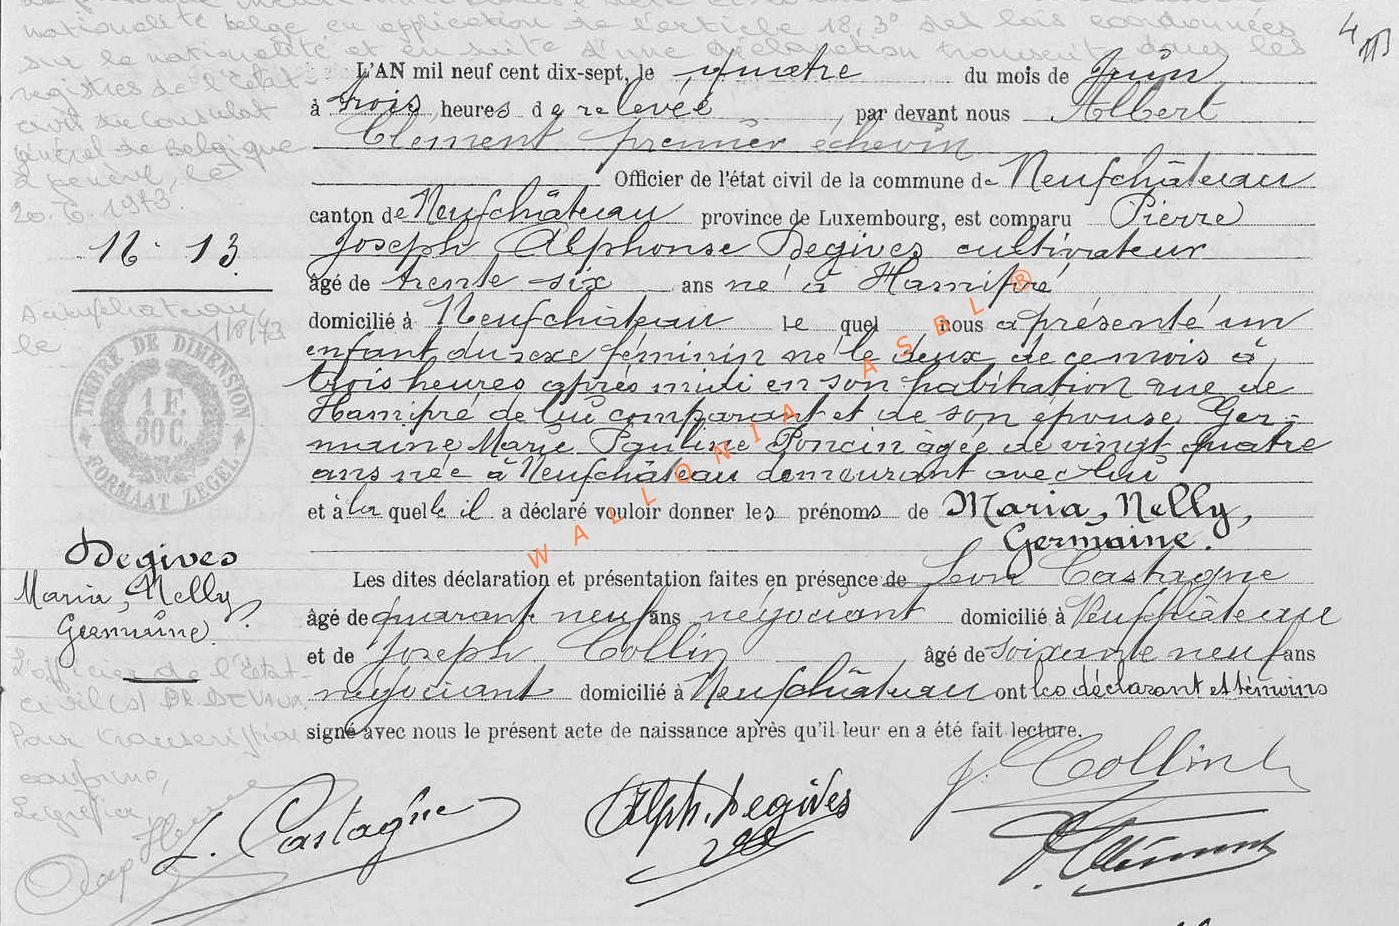 nationalité belge en application de l'article 18,3° des lois coordonnées
sur la nationalité et en suite d'une déclaration transcrit dans les
registres de l'Etat-
civil du Consulat
Général de Belgique
à Genève, le
20.6.1973.
4
L'AN mil neuf cent dix-sept, le quatre du mois de Juin
à trois heures de relevée, par devant nous Albert
Clement premier échevin
Officier de l'état civil de la commune de Neufchâteau
canton de Neufchâteau province de Luxembourg, est comparu Pierre
Joseph Alphonse Degives cultivateur
âgé de trente six ans né à Hamipré
domicilié à Neufchâteau le quel nous a présenté un
enfant du sexe féminin né le deux de ce mois à
trois heures après midi en son habitation rue de
Hamipré de lui comparant et de son épouse Ger-
maine Marie Pauline Poncin âgée de vingt quatre
ans née à Neufchâteau demeurant avec lui
et à la quelle il a déclaré vouloir donner les prénoms de Maria, Nelly,
Germaine.
Les dites déclaration et présentation faites en présence de Léon Castagne
âgé de quarante neuf ans négociant domicilié à Neufchâteau
et de Joseph Collin âgé de soixante neuf ans
négociant domicilié à Neufchâteau ont les déclarant et témoins
signé avec nous le présent acte de naissance après qu'il leur en a été fait lecture.
N. 13
Neufchateau,
le 1/8/73
TIMBRE DE DIMENSION
1 F.
30 C.
FORMAAT ZEGEL
Degives
Maria, Nelly,
Germaine
L'officier de l'état-
civil (s)
Pour transcription
conforme,
Le greffier,
L. Castagne
Alph. Degives
J. Collin
A. Clément
WALLONIA ASBL ®